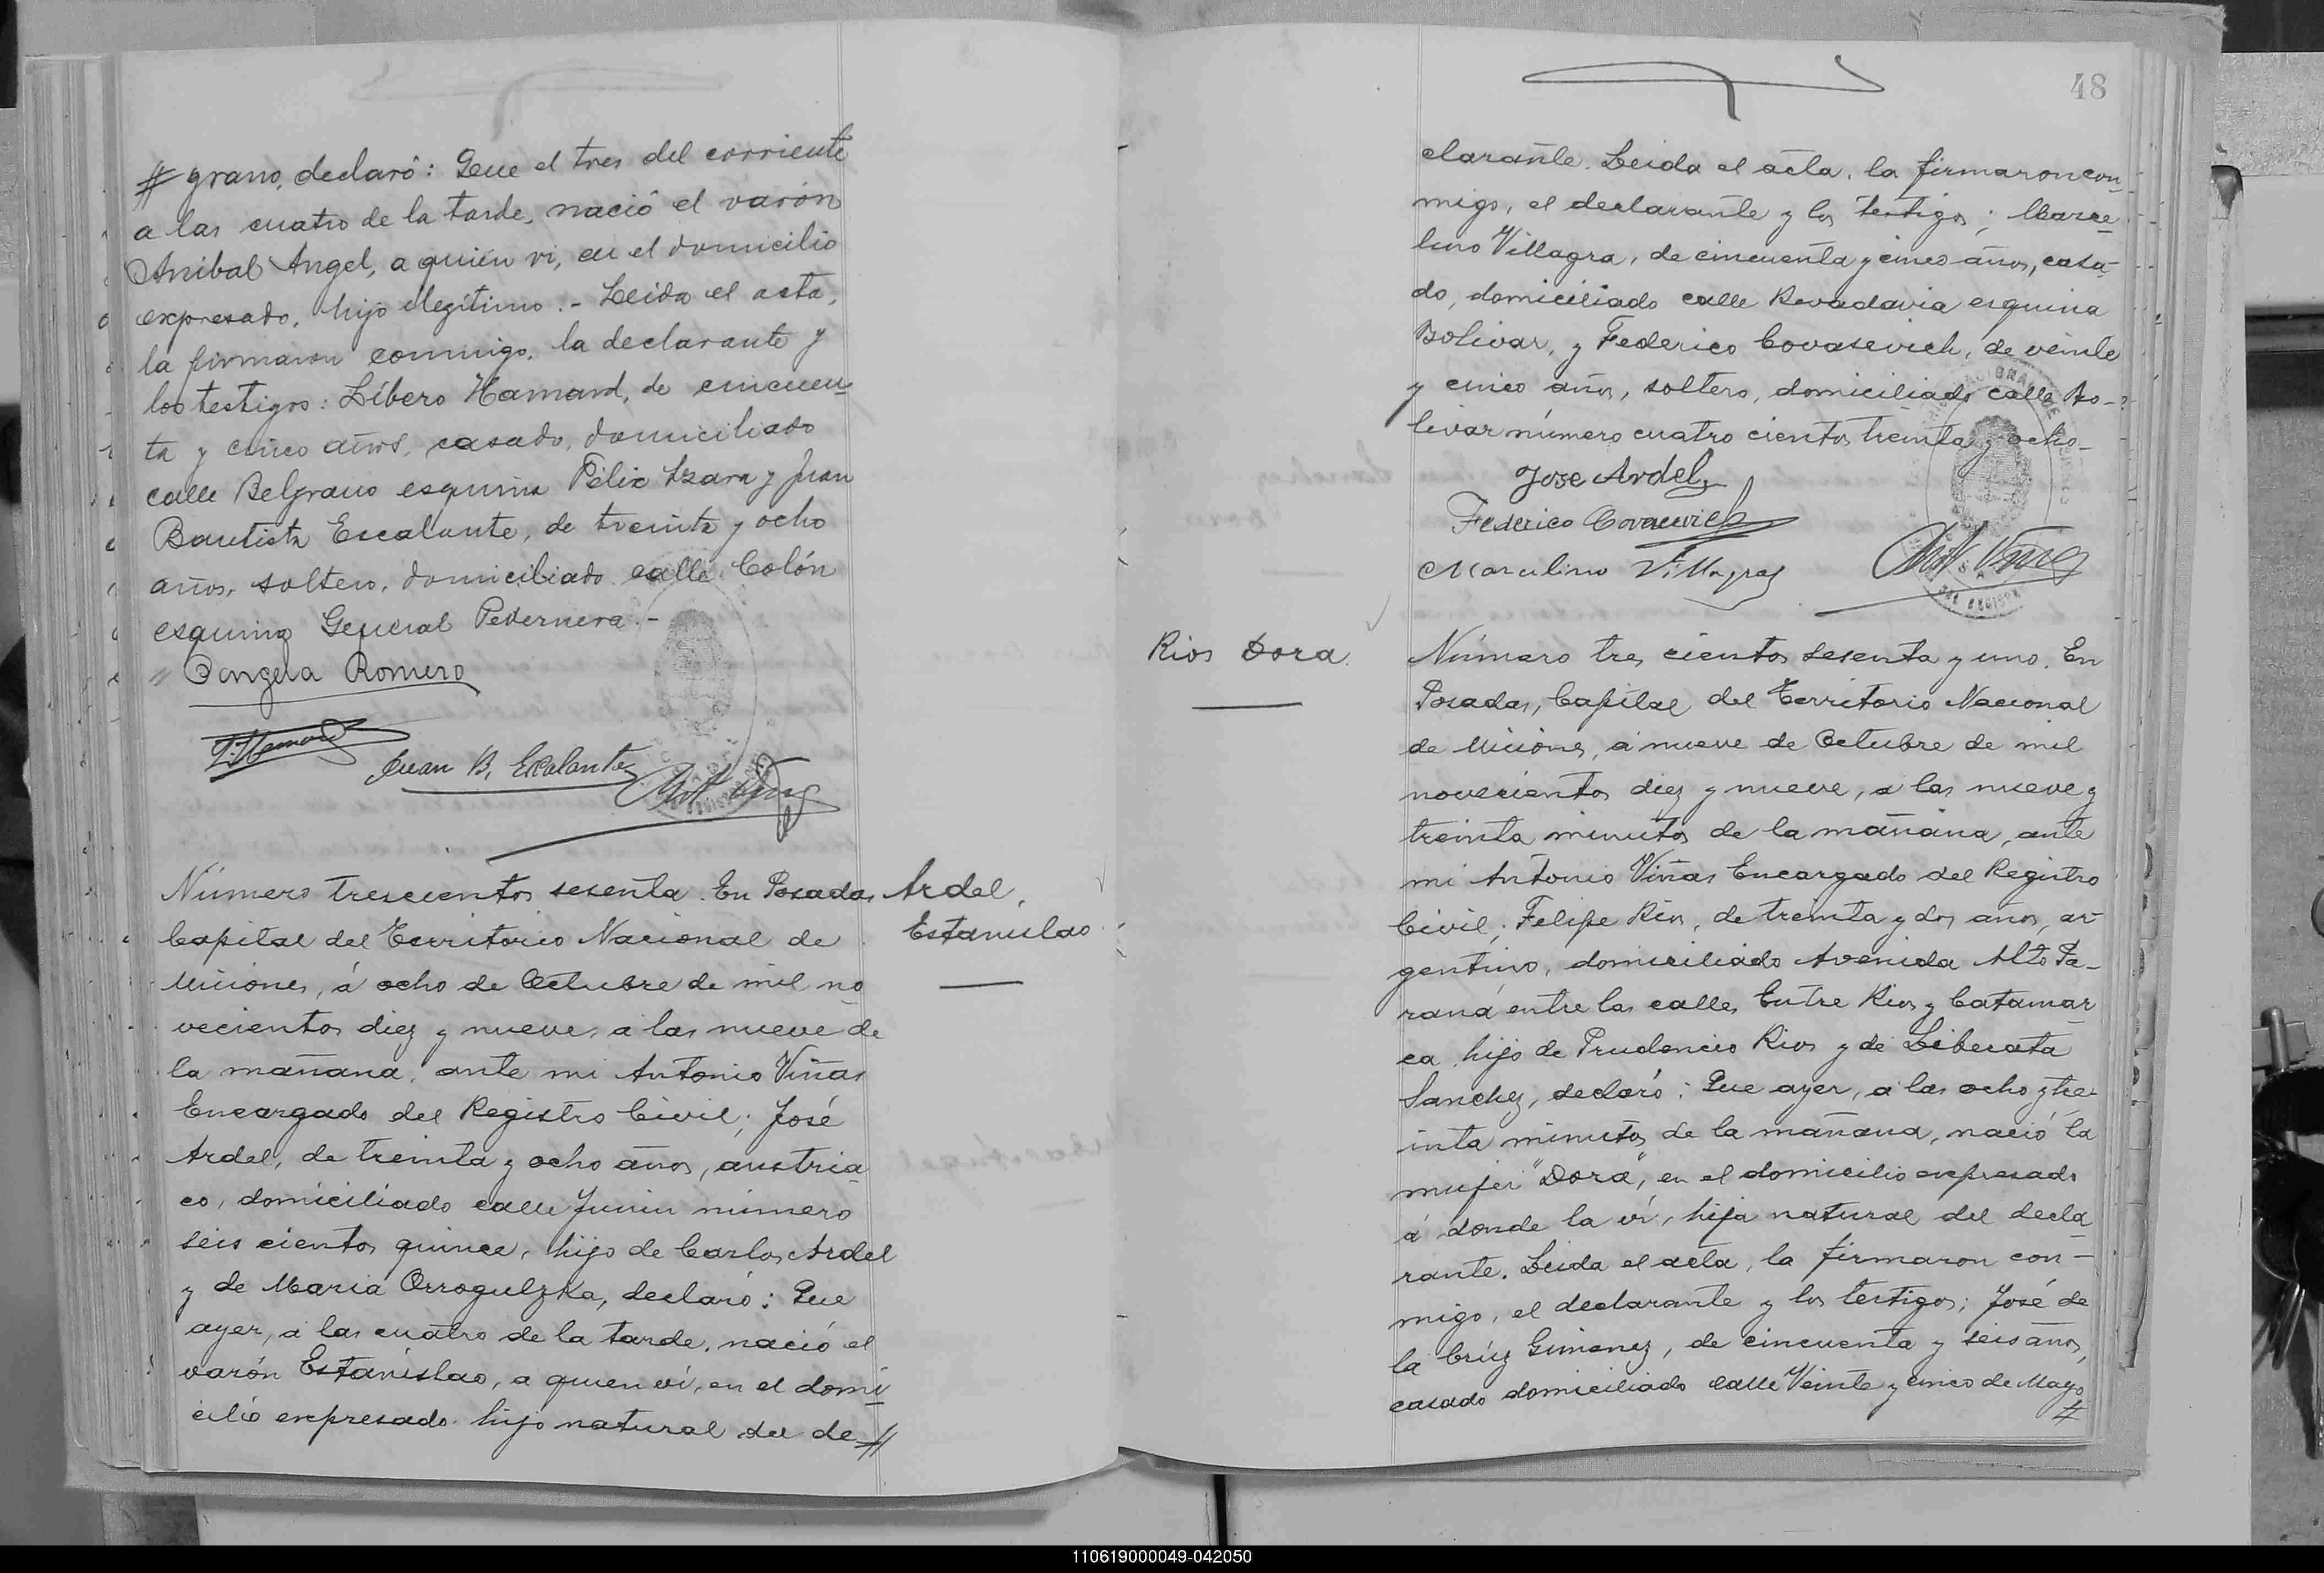 # grano, declaró: Que el tres del corriente
a las cuatro de la tarde, nació el varón
Anibal Angel, a quien vi, en el domicilio
expresado, hijo ilegítimo.- Leida el acta,
la firmaron conmigo, la declarante y
los testigos: Líbero Hamand, de cincuen-
ta y cinco años, casado, domiciliado
calle Belgrano esquina Félix Azara y Juan
Bautista Escalante, de treinta y ocho
años, soltero, domiciliado calle Colón
esquina General Pedernera.-
Angela Romero
Juan B. Escalante
Número trescientos sesenta. En Posadas
Capital del Territorio Nacional de
Misiones, á ocho de Octubre de mil no
vecientos diez y nueve, a las nueve de
la mañana, ante mi Antonio Viñas
Encargado del Registro Civil; José
Ardel, de treinta y ocho años, austria
co, domiciliado calle Junin número
seis cientos quince, hijo de Carlos Ardel
y de Maria Orrogulzka, declaró: Que
ayer, a las cuatro de la tarde, nació el
varón Estanislao, a quien ví, en el domi
cilio expresado hijo natural del de #
Ardel,
Estanislao
48
clarante. Leida el acta, la firmaron con-
migo, el declarante y los testigos; Marce
lino Villagra, de cincuenta y cinco años, casa-
do, domiciliado calle Rivadavia esquina
Bolivar, y Federico Covasevich, de veinte
y cinco años, soltero, domiciliado calle Bo-
livar número cuatro cientos treinta y ocho-
Jose Ardel
Federico Covacevich
Marcelino Villagra
Rios Dora
Número tres cientos sesenta y uno. En
Posadas, Capital del Territorio Nacional
de Misiones, á nueve de Octubre de mil
novecientos diez y nueve, a las nueve y
treinta minutos de la mañana, ante
mi Antonio Viñas Encargado del Registro
Civil; Felipe Rios, de treinta y dos años, ar-
gentino, domiciliado Avenida Alto Pa-
raná entre las calles Entre Rios y Catamar
ca, hijo de Prudencio Rios y de Liberata
Sanchez, declaró: Que ayer, a las ocho y tre-
inta minutos de la mañana, nació la
mujer "Dora", en el domicilio expresado
á donde la ví, hija natural del decla
rante. Leida el acta, la firmaron con-
migo, el declarante y los testigos; José de
la Crúz Gimenez, de cincuenta y seis años,
casado domiciliado calle Veinte y cinco de Mayo
#
110619000049-042050